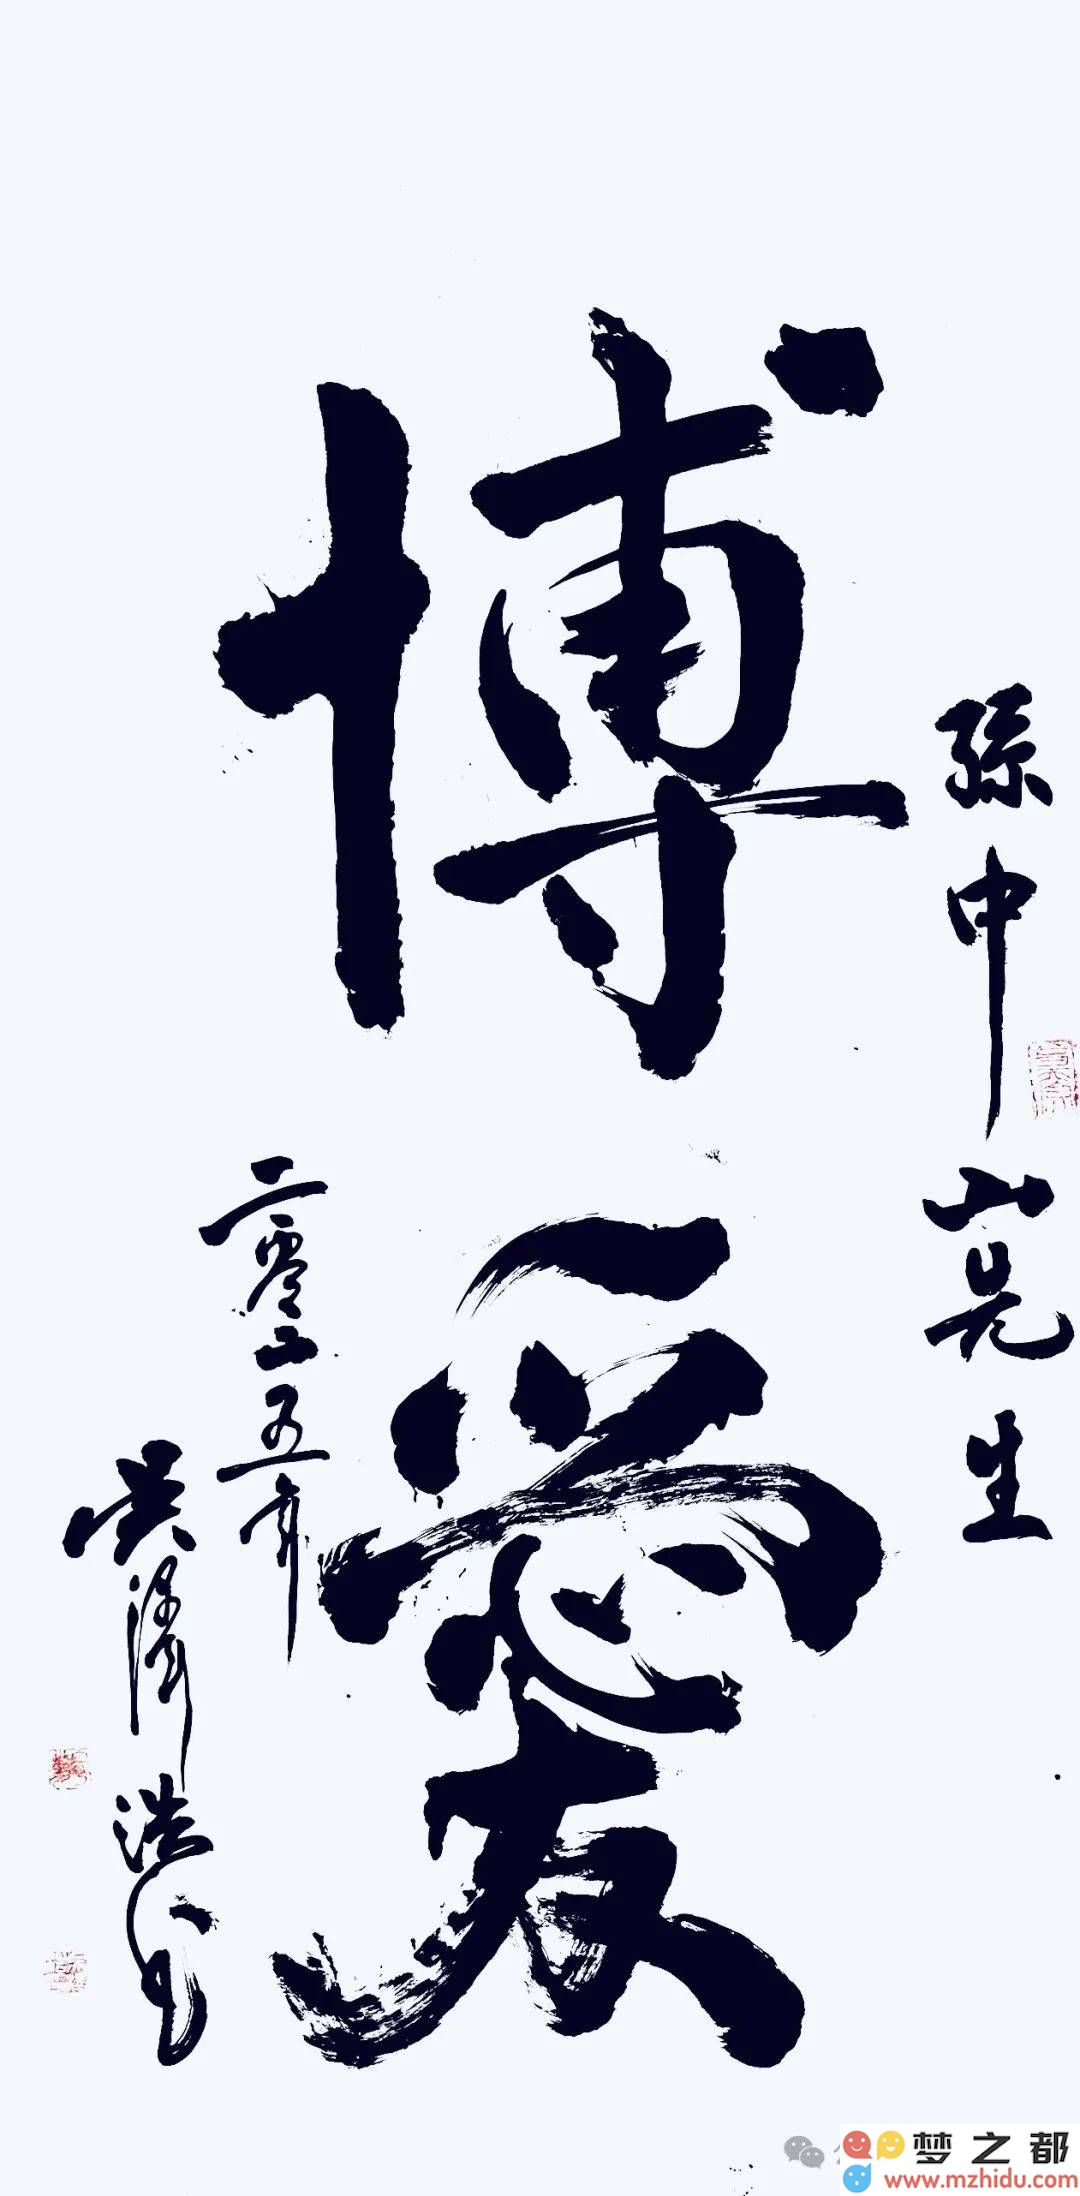 孫中山先生
博愛
二零二五年
梦之都
www.mzhidu.com